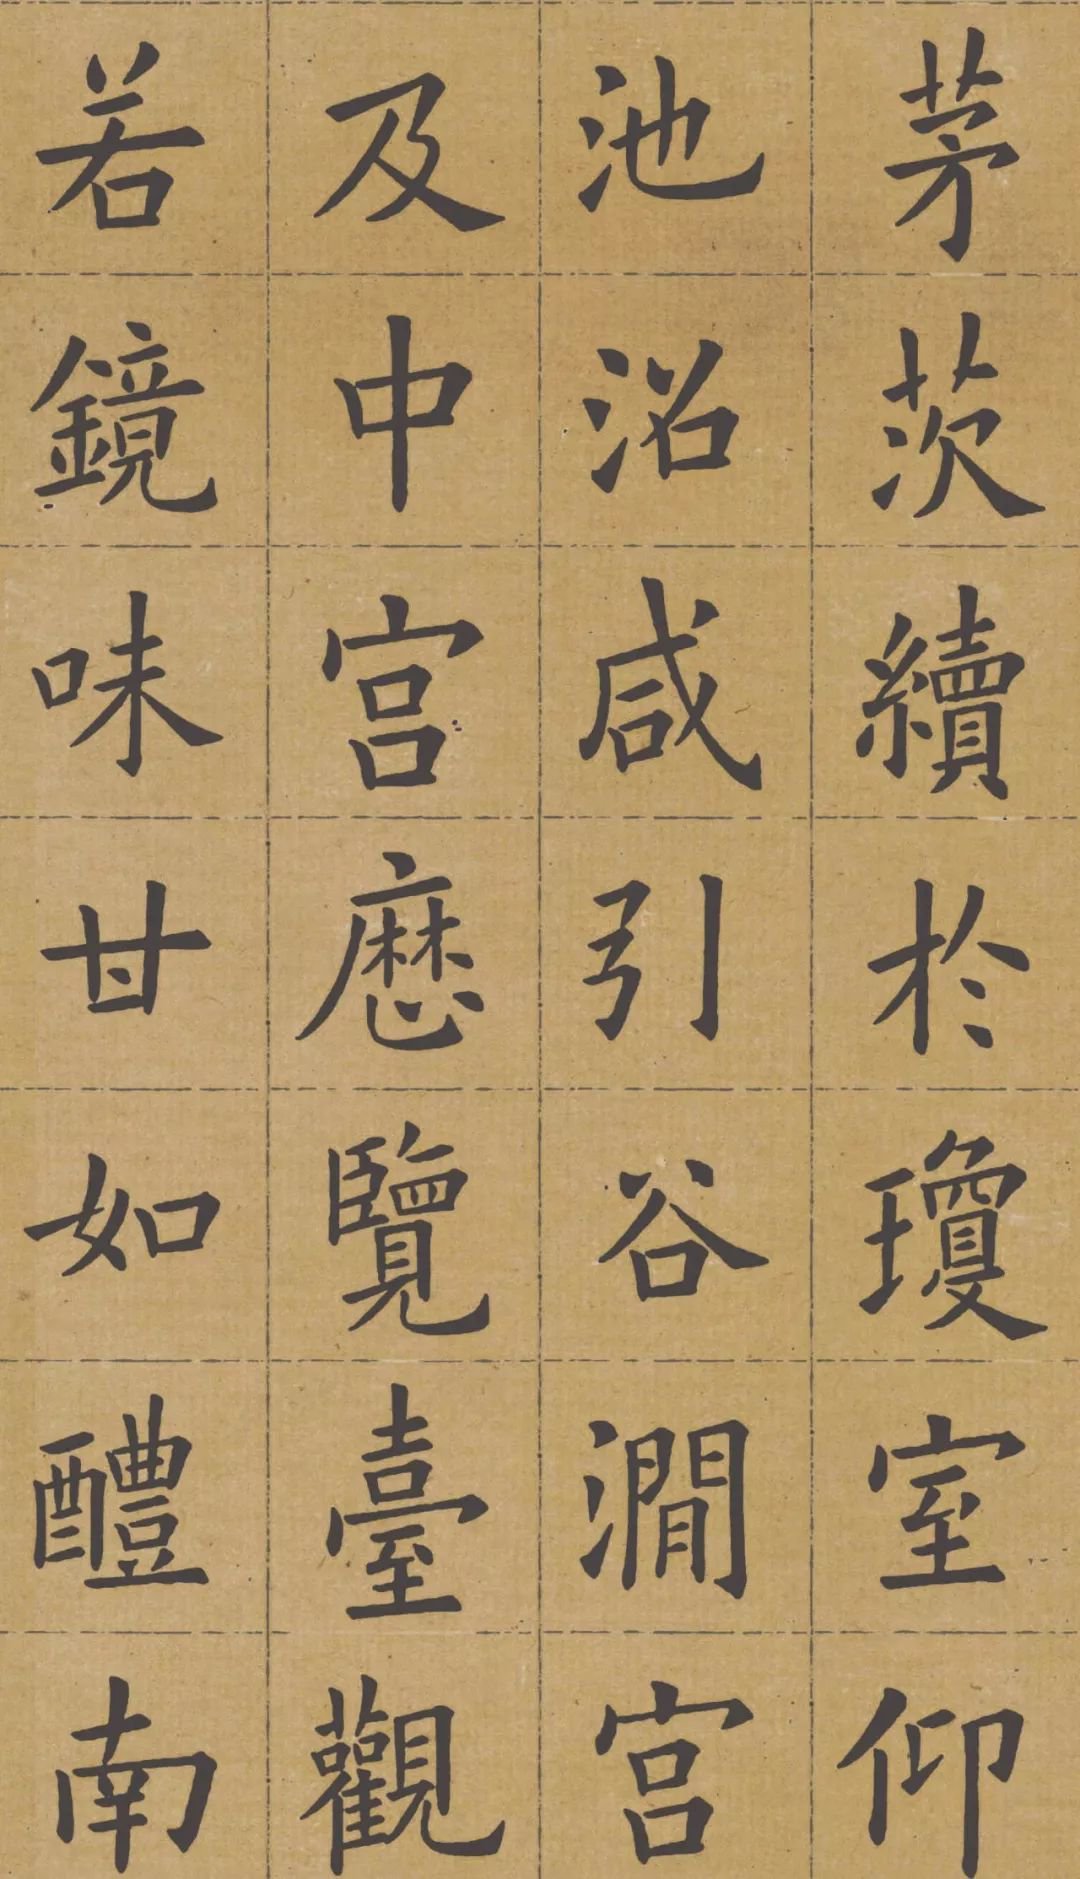 茅茨續於瓊室仰
池沼咸引谷澗宫
及中宫歷覽臺觀
若鏡味甘如醴南